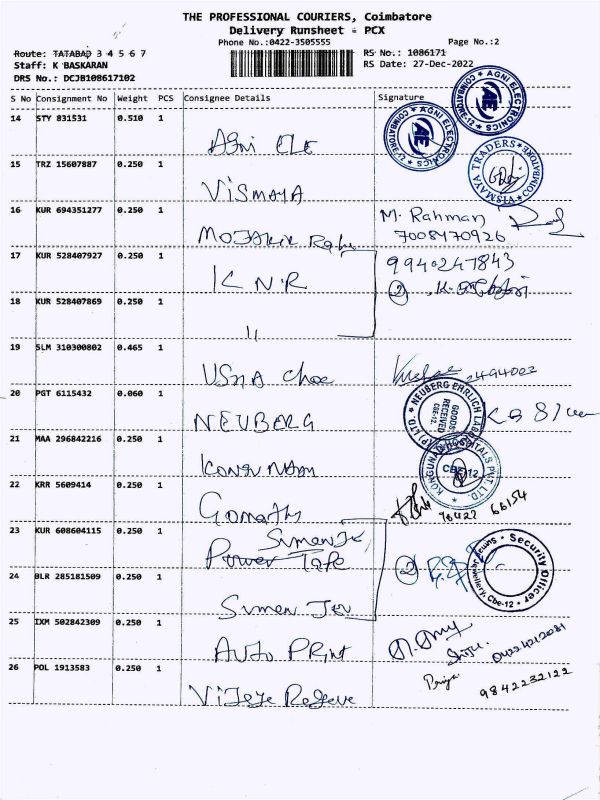 THE PROFESSIONAL COURIERS, Coimbatore
Delivery Runsheet - PCX
Phone No.:0422-3505555
Page No.:2
Route: TATABAD 3 4 5 6 7
RS No.: 1086171
Staff: K BASKARAN
RS Date: 27-Dec-2022
DRS No.: DCJB108617102
S No Consignment No Weight PCS Consignee Details Signature
14 STY 831531 0.510 1
AGNI ELE
AGNI ELECTRONICS COIMBATORE-12 AE
AGNI ELECTRONICS COIMBATORE-12 AE
15 TRZ 15607887 0.250 1
VISMAYA
VISMAYA TRADERS COIMBATORE
16 KUR 694351277 0.250 1
M. Rahman
7008470926
17 KUR 528407927 0.250 1
KNR
9940247843
2
18 KUR 528407869 0.250 1
"
19 SLM 310300802 0.465 1
USHA
20 PGT 6115432 0.060 1
NEUBERG
NEUBERG EHRLICH LAB (P) LTD.
GOODS RECEIVED
CBE-12.
21 MAA 296842216 0.250 1
KONGUNAD HOSPITALS PVT LTD.
CBE-12
22 KRR 5609414 0.250 1
Gomathi
23 KUR 608604115 0.250 1
Power Tafe
2
Security Officer
Cbe-12
24 BLR 285181509 0.250 1
Suman Jew
25 IXM 502842309 0.250 1
AUTO PRINT
26 POL 1913583 0.250 1
Priya
9842232122